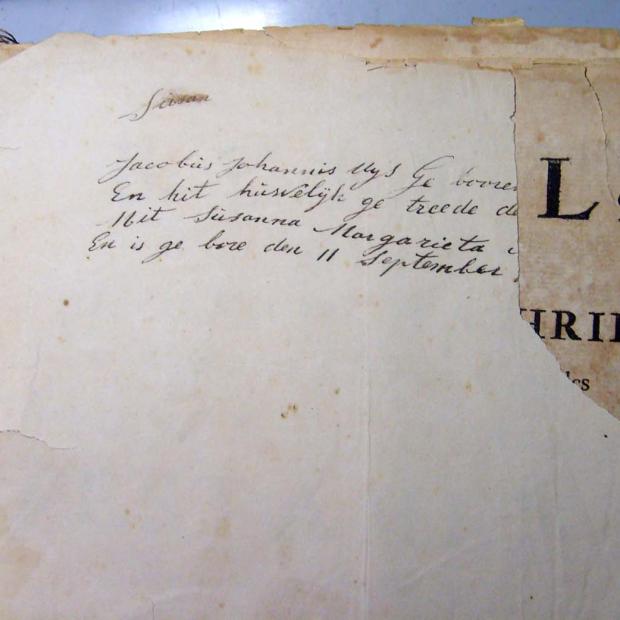 Susan
Jacobus Johannis Uys Ge booren
En hit húsvelijk ge treede de
Mit Süsanna Margarieta
En is ge bore den 11 September
L
HRI
des